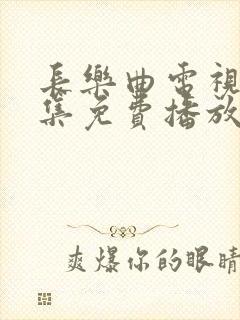 長樂曲電視
集免費播放
爽爆你的眼睛